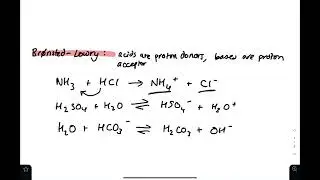 Brønsted-Lowry: acids are proton donors, bases are proton acceptor
NH₃ + HCl → NH₄⁺ + Cl⁻
H₂SO₄ + H₂O ⇌ HSO₄⁻ + H₃O⁺
H₂O + HCO₃⁻ ⇌ H₂CO₃ + OH⁻